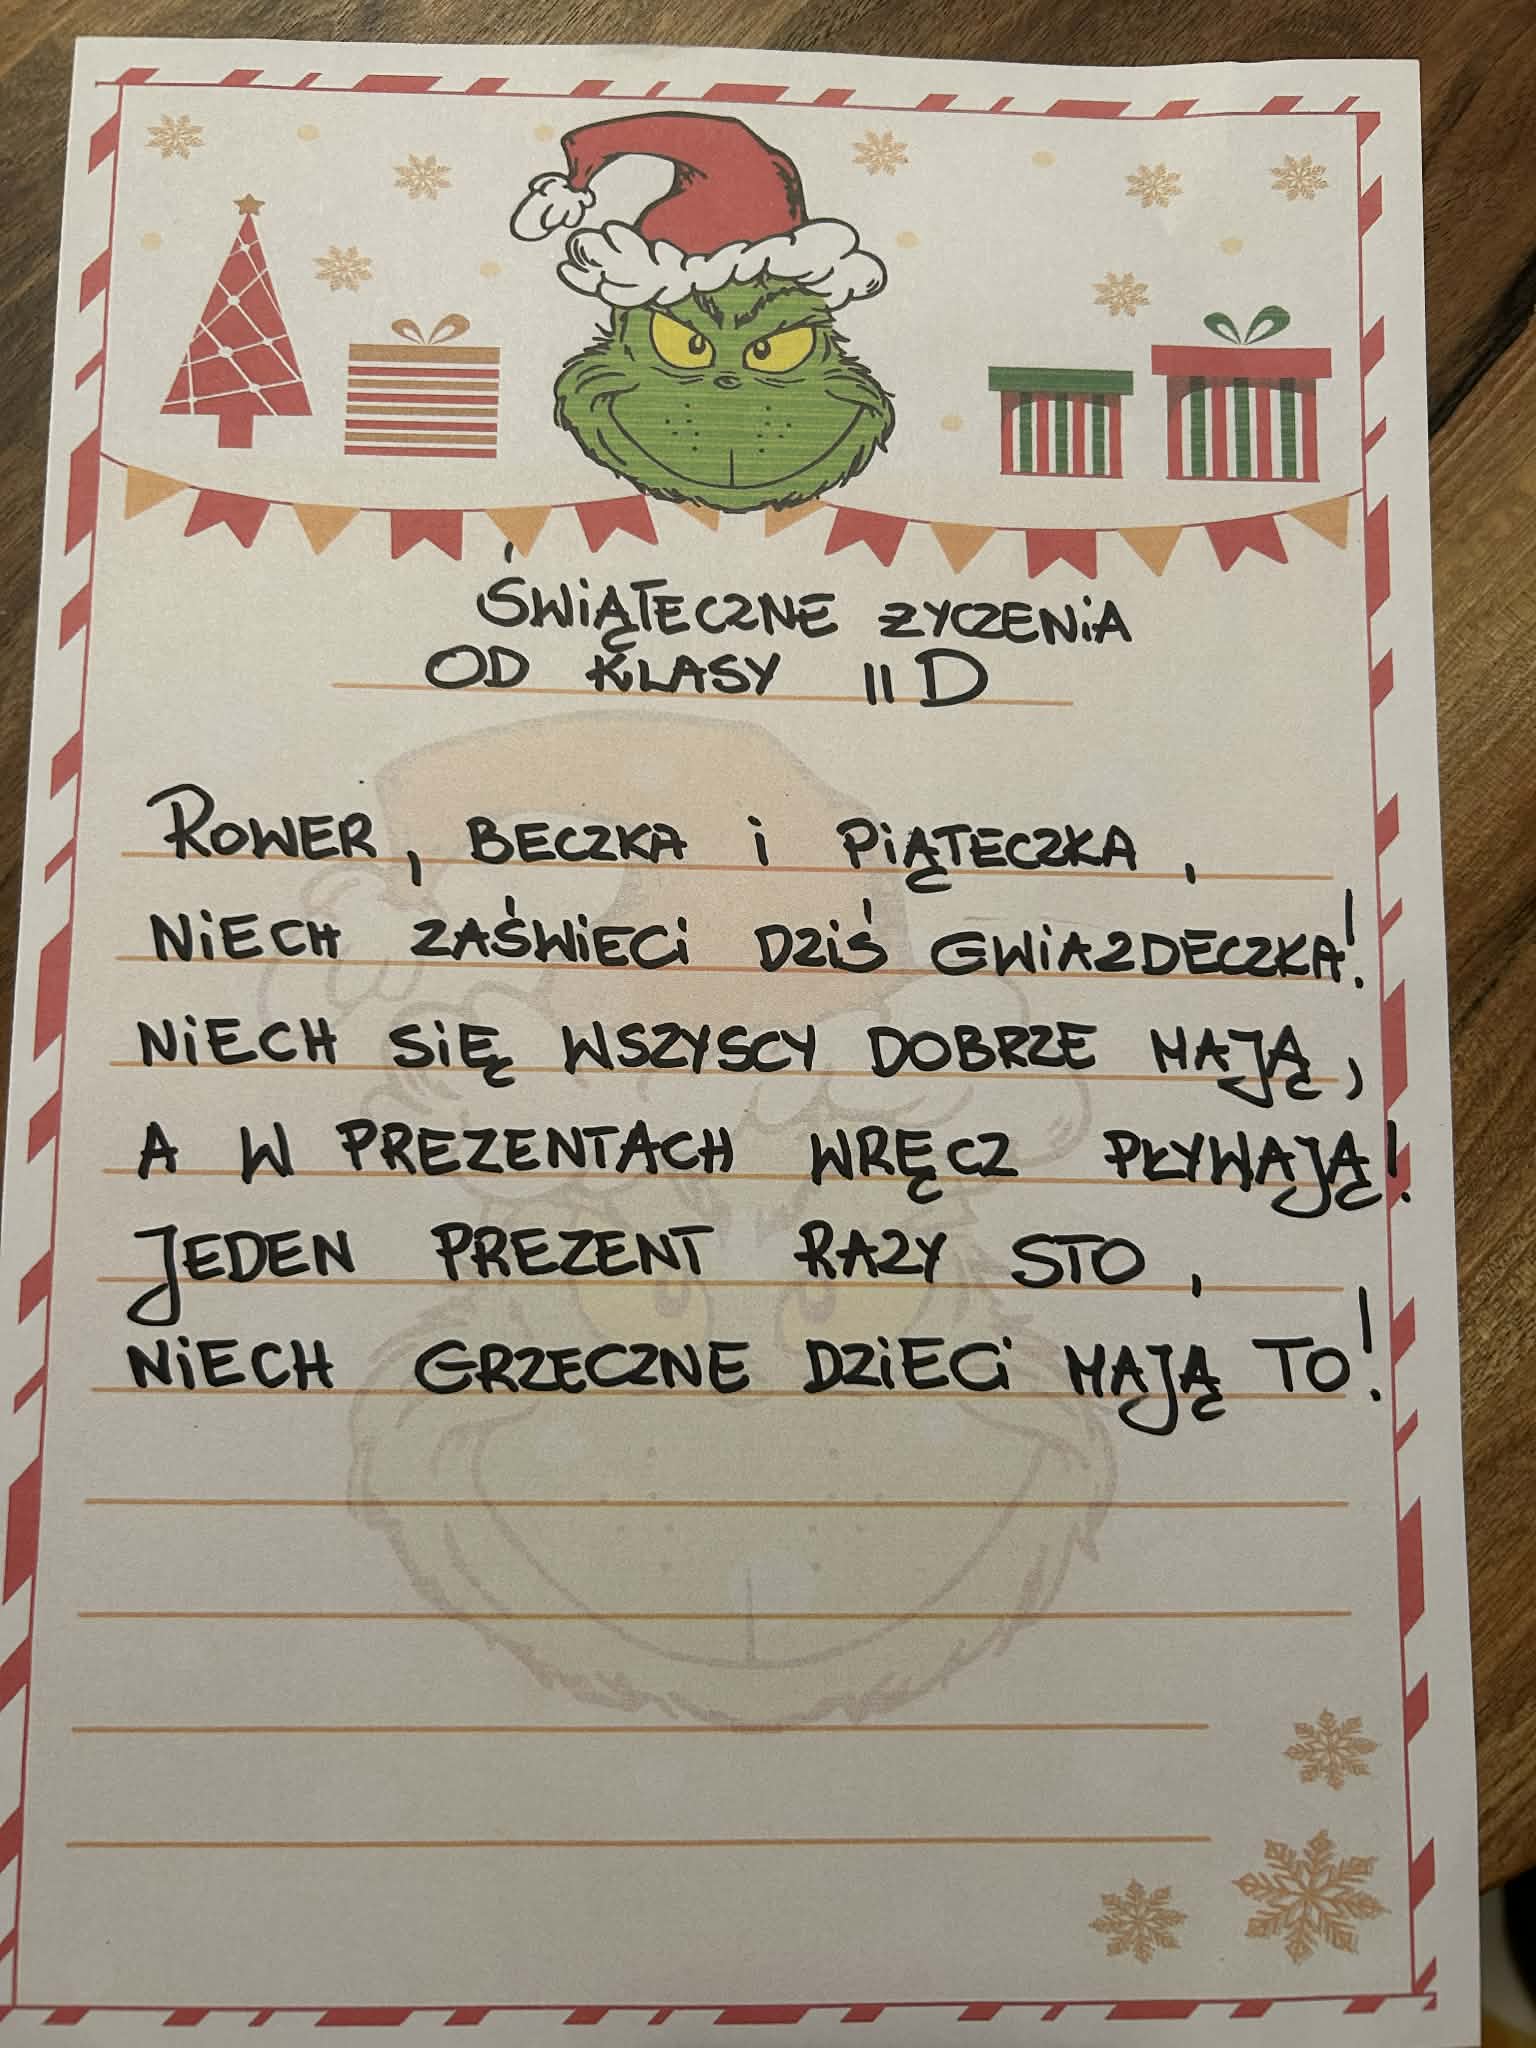 ŚWIĄTECZNE ŻYCZENIA
OD KLASY II D
ROWER, BECZKA i PIĄTECZKA,
NIECH ZAŚWIECI DZIŚ GWIAZDECZKA!
NIECH SIĘ WSZYSCY DOBRZE MAJĄ,
A W PREZENTACH WRĘCZ PŁYWAJĄ!
JEDEN PREZENT RAZY STO,
NIECH GRZECZNE DZIECI MAJĄ TO!